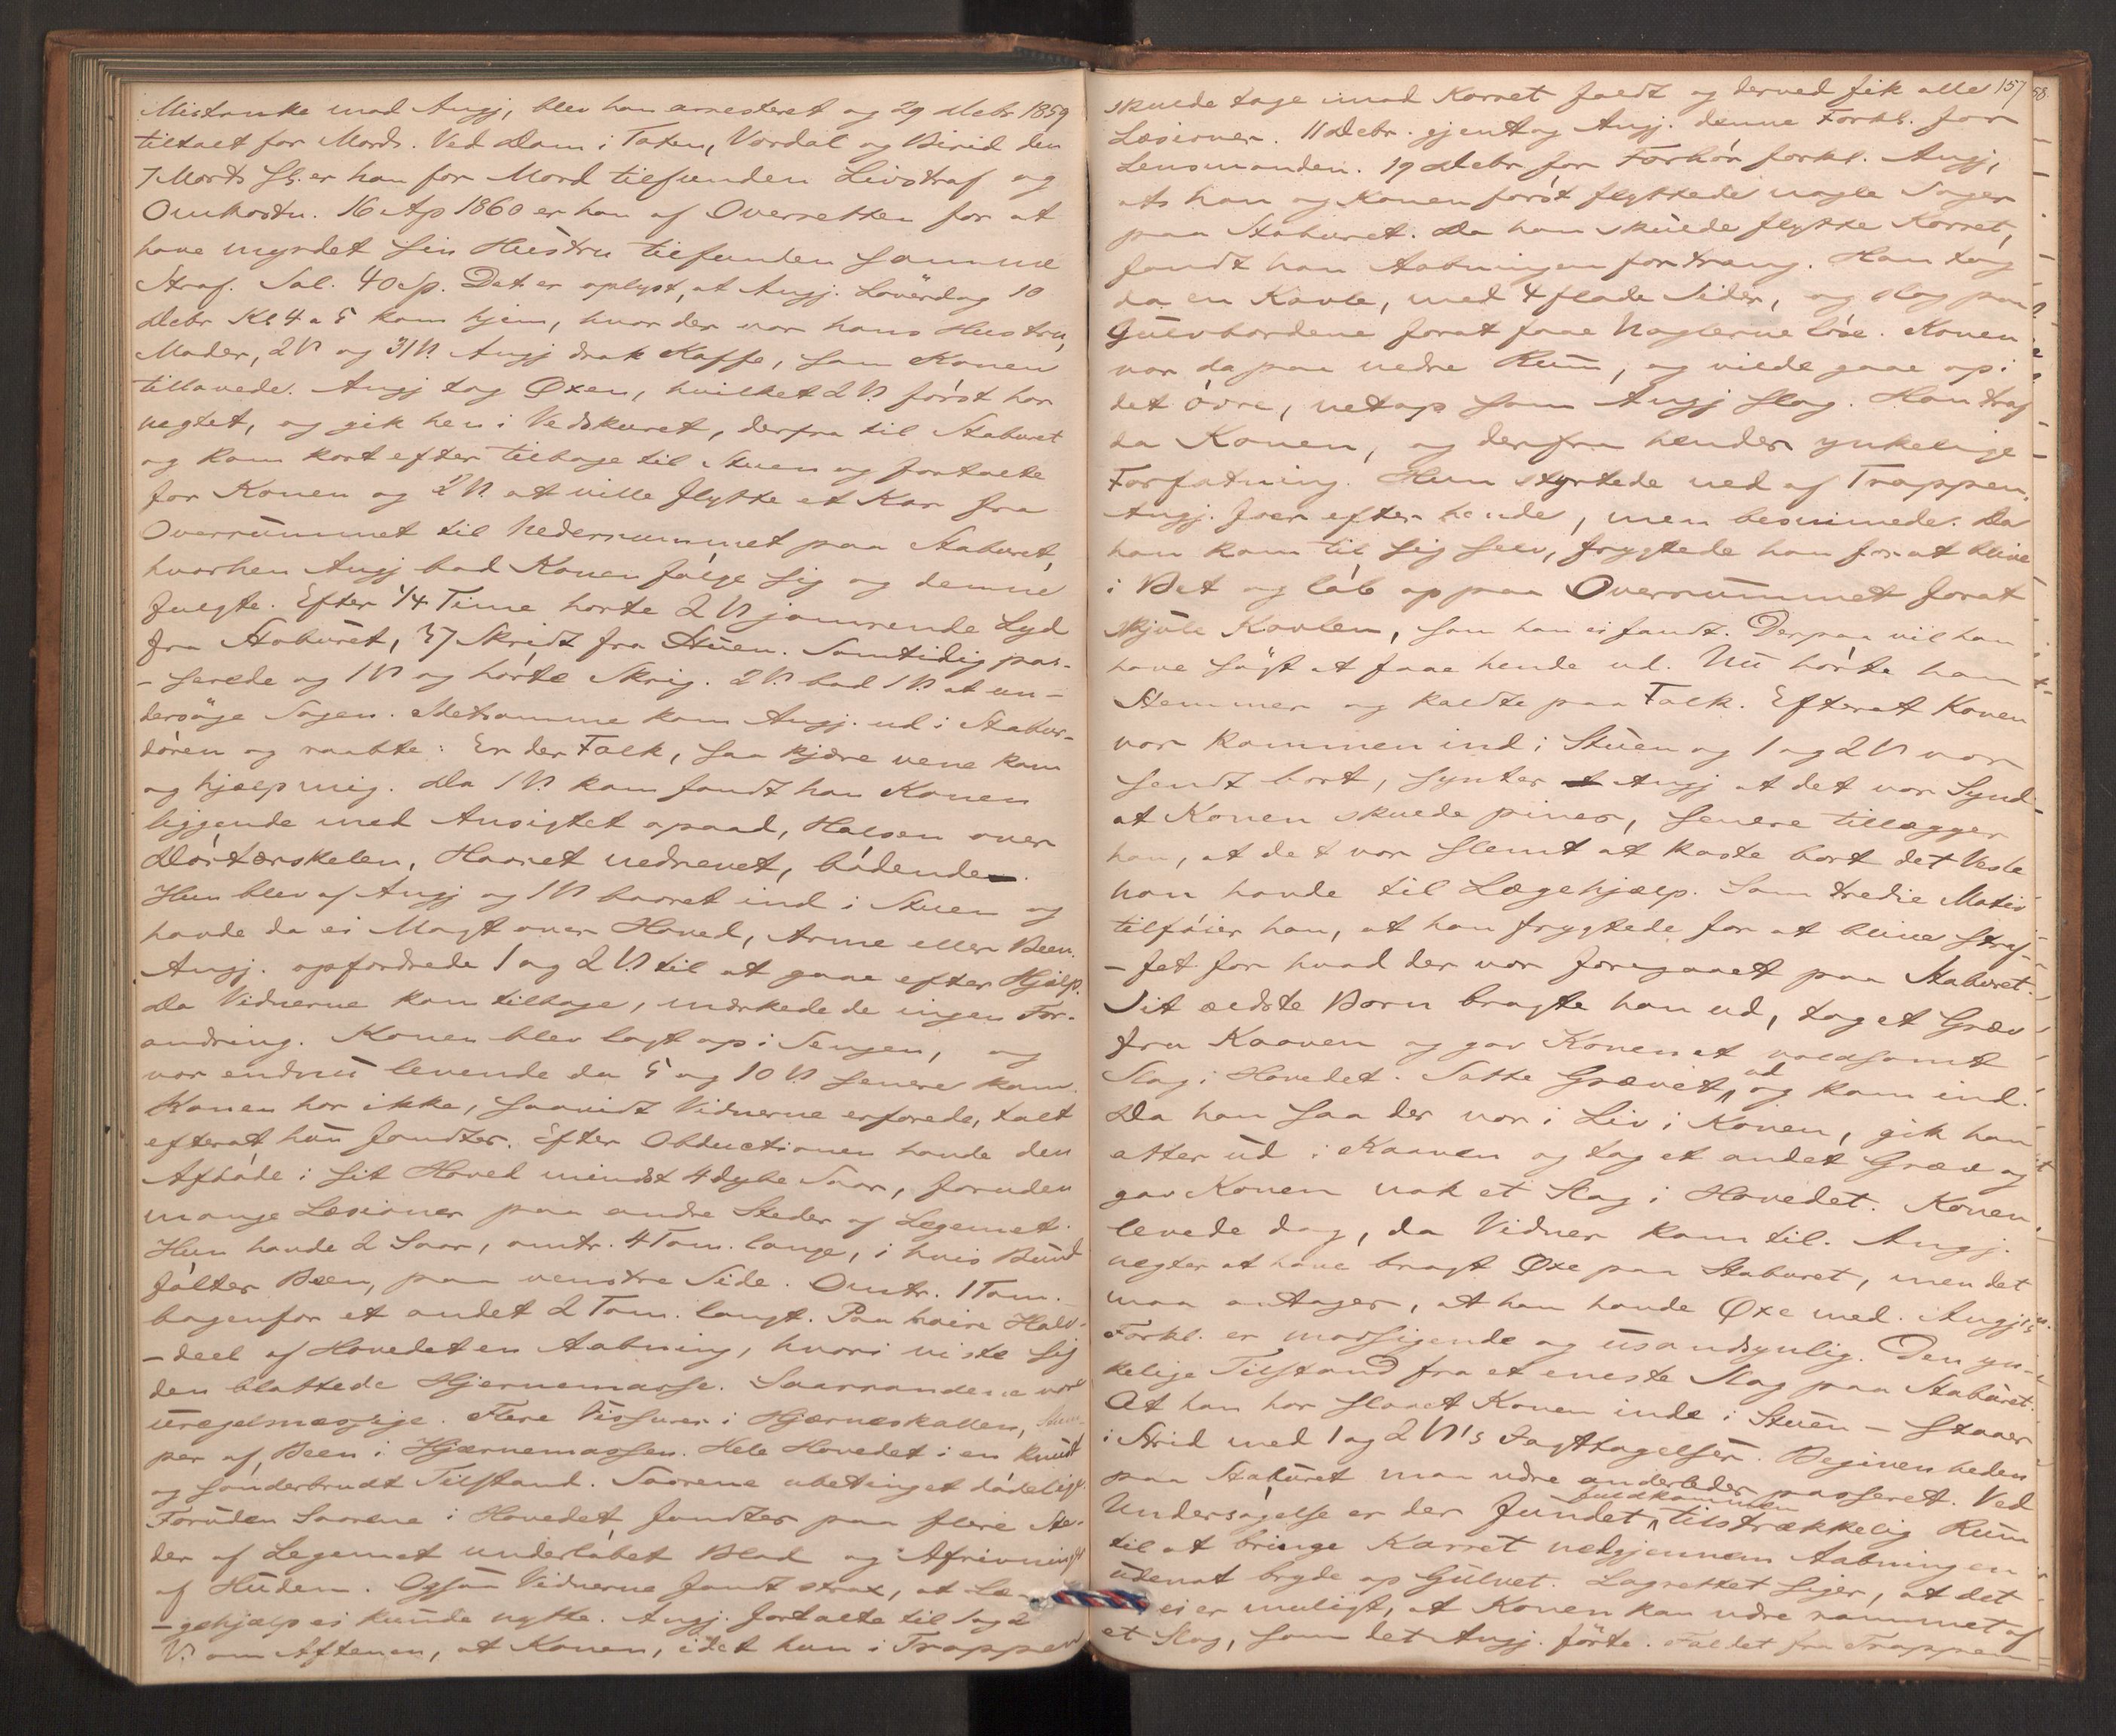 Mistanke mod Angj, blev han arresteret og 29 Debr 1859
tiltalt for Mord. Ved Dom i Toten, Vardal og Birid den
7 Marts sl. er han for Mord tilfunden Livstraf og
Omkostn. 16 Ap 1860 er han af Overretten for at
have myrdet sin Hustru tilfunden samme
Straf. Sal. 40 Sp. Det er oplyst, at Angj. Löverdag 10
Debr Kl 4 a 5 kom hjem, hvor der var hans Hustru,
Moder, 2 V. og 31 V. Angj drak Kaffe, som Konen
tillavede. Angj tog Øxen, hvilket 2 V. först har
negtet, og gik hen i Vedskuret, derfra til Staburet
og kom kort efter tilbage til Stuen og fortalte
for Konen og 2 V. at ville flytte et Kar fra
Overrummet til Nederrummet paa Staburet,
hvorhen Angj bad Konen fölge sig og denne
fulgte. Efter 1/4 Time hørte 2 V jamrende Lyd
fra Staburet, 37 Skridt fra Stuen. Samtidig pas-
-serede og 1 V og hörte Skrig. 2 V. bad 1 V. at un-
dersöge Sagen. Detsamme kom Angj. ud i Stabur-
dören og raabte: Er der Folk, saa kjære vene kom
og hjælp mig. Da 1 V. kom fandt han Konen
liggende med Ansigtet opaad, Halsen over
Dörtærskelen, Haaret nedrevet, blödende.
Hun blev af Angj og 1 V baaret ind i Stuen og
havde da ei Magt over Hoved, Arme eller Been.
Angj. opfordrede 1 og 2 V. til at gaae efter Hjælp.
Da Vidnerne kom tilbage, mærkede de ingen For-
andring. Konen blev lagt op i Sengen, og
var endnu levende da 5 og 10 V. senere kom.
Konen har ikke, saavidt Vidnerne erfarede, talt
efterat hun fandtes. Efter Obductionen havde den
Afdöde i sit Hoved mindst 4 dybe Saar, foruden
mange Læsioner paa andre Steder af Legemet.
Hun havde 2 Saar, omtr. 4 Tom. lange, i hvis Bund
föltes Been, paa venstre Side. Omtr. 1 Tom.
bagenfor et andet 2 Tom. langt. Paa höire Halv-
-deel af Hovedet en Aabning, hvori viste sig
den blottede Hjernemasse. Saarrandene vare
uregelmæssige. Flere Fissurer i Hjærneskallen, Stum-
per af Been i Hjærnemassen. Hele Hovedet i en knust
og sönderbrudt Tilstand. Saarene ubetinget dödeligt.
Foruden Saarene i Hovedet fandtes paa flere Ste-
der af Legemet underlöbet Blod og Afrivning
af Huden. Ogsaa Vidnerne fandt strax, at Læ-
-gehjælp ei kunde nytte. Angj. fortalte til 1 og 2
V. om Aftenen, at Konen, idet hun i Trappen
157
58.
skulde tage imod Karret faldt og derved fik alle
Læsioner. 11 Debr. gjentog Angj. denne Forkl. for
Lensmanden. 19 Debr for Forhör forkl. Angj,
at han og Konen först flyttede nogle Sager
paa Staburet. Da han skulde flytte Karret,
fandt han Aabningen for trang. Han tog
da en Kavle, med 4 flade Sider, og slog paa
Gulvbordene forat faae Naglerne löse. Konen
var da paa nedre Rum, og vilde gaae op i
det övre, netop som Angj slog. Han traf
da Konen, og derfra hendes ynkelige
Forfatning. Hun styrtede ned af Trappen.
Angj. foer efter hende, men besvimede. Da
han kom til sig selv, frygtede han for at blive
i Bet og löb op paa Overrummet forat
skjule Kavlen, som han ei fandt. Derpaa vil han
have sögt at faae hende ud. Nu hörte han
Stemmer og kaldte paa Folk. Efterat Konen
var kommen ind i Stuen og 1 og 2 V var
sendt bort, syntes Angj at det var Synd
at Konen skulde pines, senere tillægger
han, at det var slemt at kaste bort det Vesle
han havde til Lægehjælp. Som tredie Motiv
tilföier han, at han frygtede for at blive straf-
-fet for hvad der var foregaaet paa Staburet.
Sit ældste Barn bragte han ud, tog et Græv
fra Kaaven og gav Konen et voldsomt
Slag i Hovedet. Satte Grævet ud og kom ind.
Da han saa der var i Liv i Konen, gik han
atter ud i Kaaven og tog et andet Græv og
gav Konen nok et Slag i Hovedet. Konen
levede dog, da Vidner kom til. Angj.
negter at have bragt Øxe paa Staburet, men det
maa antages, at han havde Øxe med. Angj's
Forkl. er modsigende og usandsynlig. Den yn-
kelige Tilstand fra et eneste Slag paa Staburet.
At han har slaaet Konen inde i Stuen – staaer
i Strid med 1 og 2 V's Iagttagelser. Begivenheden
paa Staburet maa være anderledes passeret. Ved
Undersögelse er der fundet fuldkommen tilstrækkelig Rum
til at bringe Karret nedgjennem Aabningen
udenat bryde op Gulvet. Lagrettet siger, at det
ei er muligt, at Konen kan være rammet af
et Slag, som det Angj. förte. Faldet fra Trappen